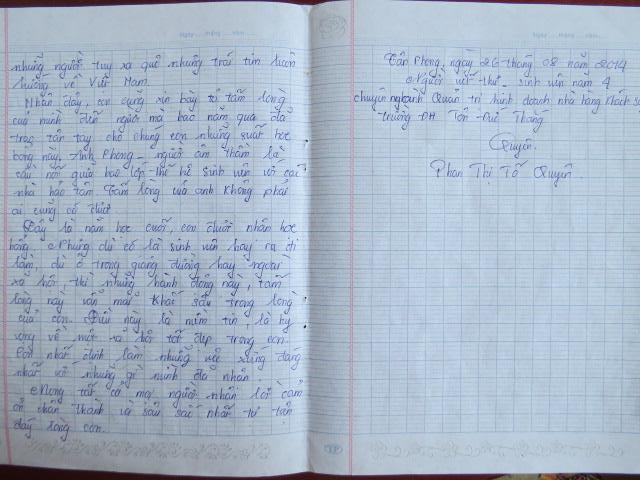 Ngày.....tháng.....năm.....
những người tuy xa quê nhưng trái tim luôn
hướng về Việt Nam.
Nhân đây, con cũng xin bày tỏ tấm lòng
của mình đến người mà bao năm qua đã
trao tận tay cho chúng con những suất học
bổng này. Anh Phong - người âm thầm là
cầu nối giữa bao lớp thế hệ sinh viên với các
nhà hảo tâm. Tấm lòng của anh không phải
ai cũng có được.
Đây là năm học cuối, con được nhận học
bổng. Nhưng dù có là sinh viên hay ra đi
làm, dù ở trong giảng đường hay ngoài
xã hội, thì những hành động này, tấm
lòng này vẫn mãi khắc sâu trong lòng
của con. Điều này là niềm tin, là hy
vọng về một xã hội tốt đẹp trong con.
Con nhất định làm những việc xứng đáng
nhất với những gì mình đã nhận.
Mong tất cả mọi người nhận lời cảm
ơn chân thành và sâu sắc nhất từ tận
đáy lòng con.
Ngày.....tháng.....năm.....
Tân Phong, ngày 26 tháng 08 năm 2014
Người viết thư - sinh viên năm 4
chuyên ngành Quản trị kinh doanh nhà hàng khách sạn
trường ĐH Tôn Đức Thắng
Quyên.
Phan Thị Tố Quyên.